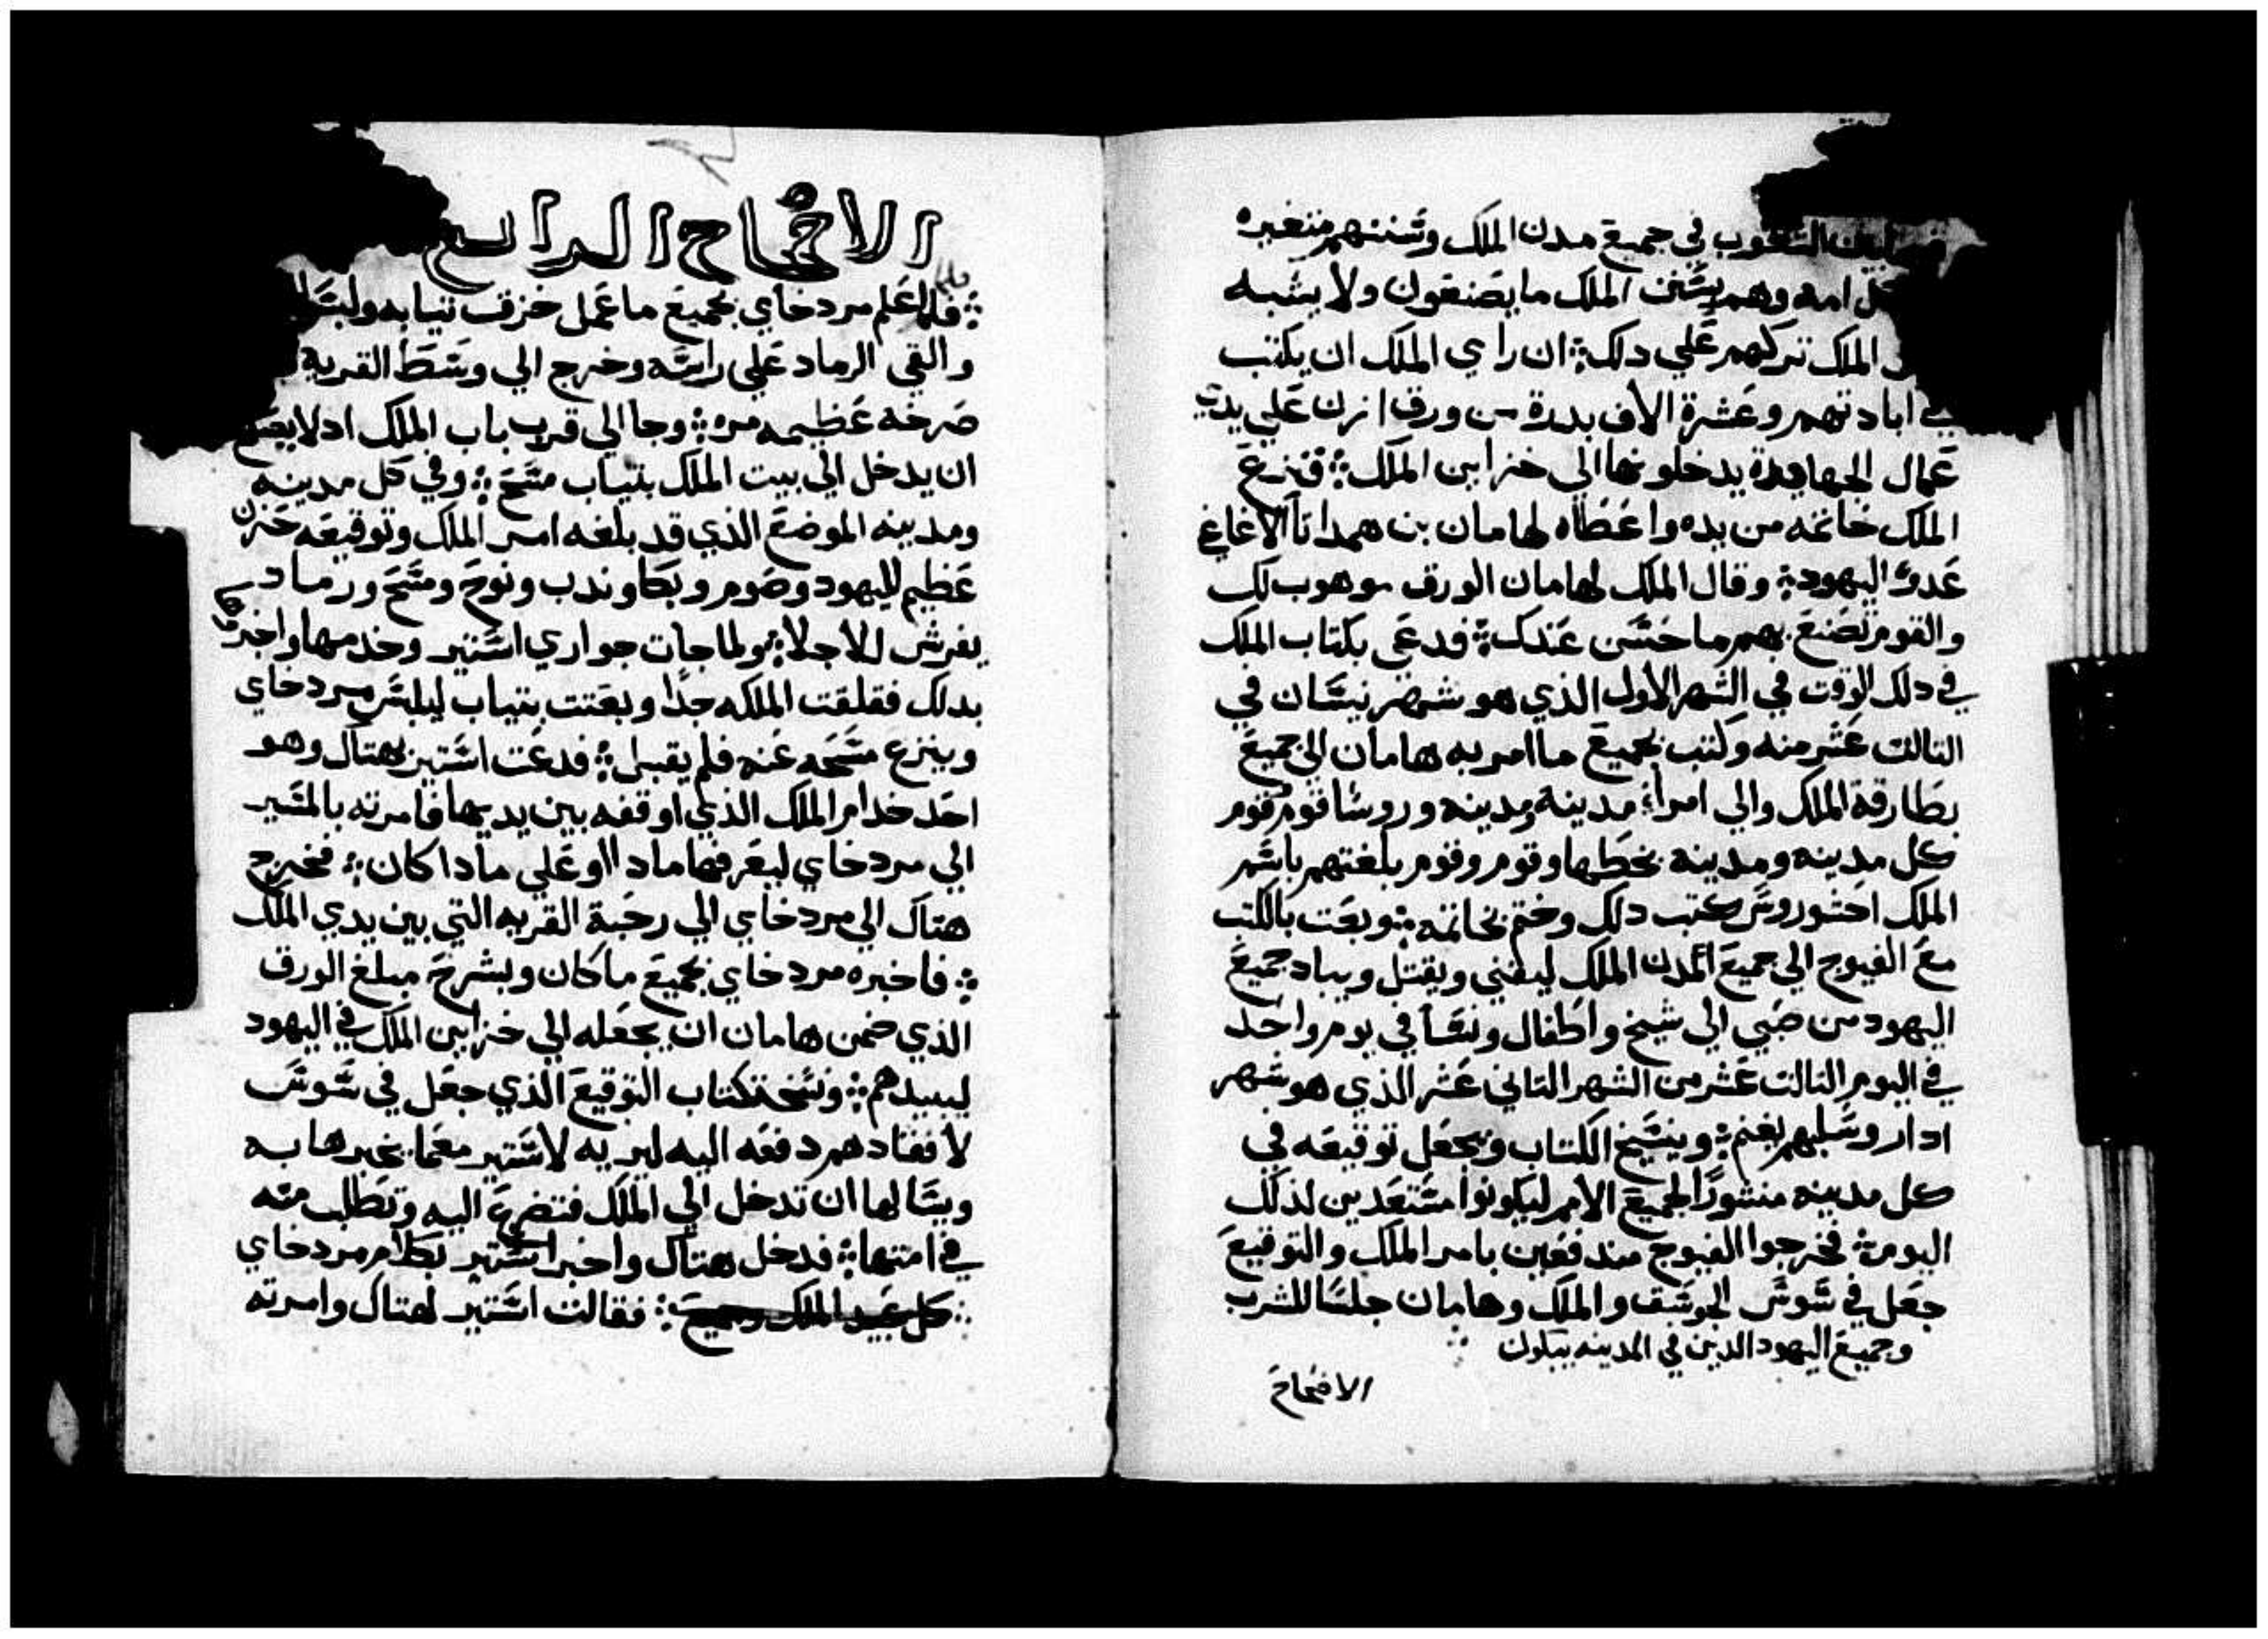 الشعوب في جميع مدن الملك وسننهم متغيره
كل امه وهم بسنن الملك ما يصنعون ولا يشبه
الملك تركهم علي دلك ان راي الملك ان يكتب
في ابادتهم وعشرة الاف بدرة من ورق ازن علي يدي
عمال الجهابدة يدخلونها الي خزاين الملك فنزع
الملك خاتمه من يده واعطاه لهامان بن همداتا الاغاغي
عدو اليهود وقال الملك لهامان الورق موهوب لك
والقوم تصنع بهم ما حسن عندك فدعي بكتاب الملك
في دلك الوقت في الشهر الاول الذي هو شهر نيسان في
التالت عشر منه وكتب بجميع ما امر به هامان الي جميع
بطارقة الملك والي امراء مدينة مدينه وروسا قوم قوم
كل مدينه ومدينه بخطها وقوم وقوم بلغتهم باسم
الملك احشوروش كتب دلك وختم بخاتمه وبعت بالكتب
مع الفيوج الي جميع المدن الملك ليفني ويقتل ويباد جميع
اليهود من صبي الي شيخ واطفال ونسا في يوم واحد
في اليوم التالت عشر من الشهر التاني عشر الذي هو شهر
ادار وسلبهم يغنم وينسخ الكتاب ويجعل توقيعه في
كل مدينه منشورًا لجميع الامم ليكونوا مستعدين لذلك
اليوم فخرجوا الفيوج مندفعين بامر الملك والتوقيع
جعل في شوش الجوسق والملك وهامان جلسا للشرب
وجميع اليهود الدين في المدينه يبكون
الافتحاح
الافتحاح الرابع
فلما علم مردخاي بجميع ما عمل خزق تيابه ولبس
والقي الرماد علي راسه وخرج الي وسط القريه
صرخه عظيمه مره وجا الي قرب باب الملك ادلا يصح
ان يدخل الي بيت الملك بتياب مسح وفي كل مدينه
ومدينه الموضع الذي قد بلغه امر الملك وتوقيعه حزن
عظيم لليهود وصوم وبكا وندب ونوح ومسح ورماد
يفرش للاجلا ولما جات جواري استير وخدمها واخبروها
بدلك فقلقت الملكه جدًا وبعتت بتياب ليلبس مردخاي
وينزع مسحه عنه فلم يقبل فدعت استير بهتاك وهو
احد خدام الملك الذي اوقفه بين يديها فامرته بالمسير
الي مردخاي ليعرفها مادا او علي مادا كان فخرج
هتاك الي مردخاي الي رحبة القريه التي بين يدي الملك
فاخبره مردخاي بجميع ما كان وبشرح مبلغ الورق
الذي ضمن هامان ان يجعله الي خزاين الملك في اليهود
ليبيدهم ونسخة كتاب التوقيع الذي جعل في شوش
لافنادهم دفعه اليه ليريه لاستير معما يخبرها به
ويسالها ان تدخل الي الملك فتضرع اليه وتطلب منه
في امتها فدخل هتاك واخبر استير بكلام مردخاي
كل عبيد الملك وجميع فقالت استير لهتاك وامرته